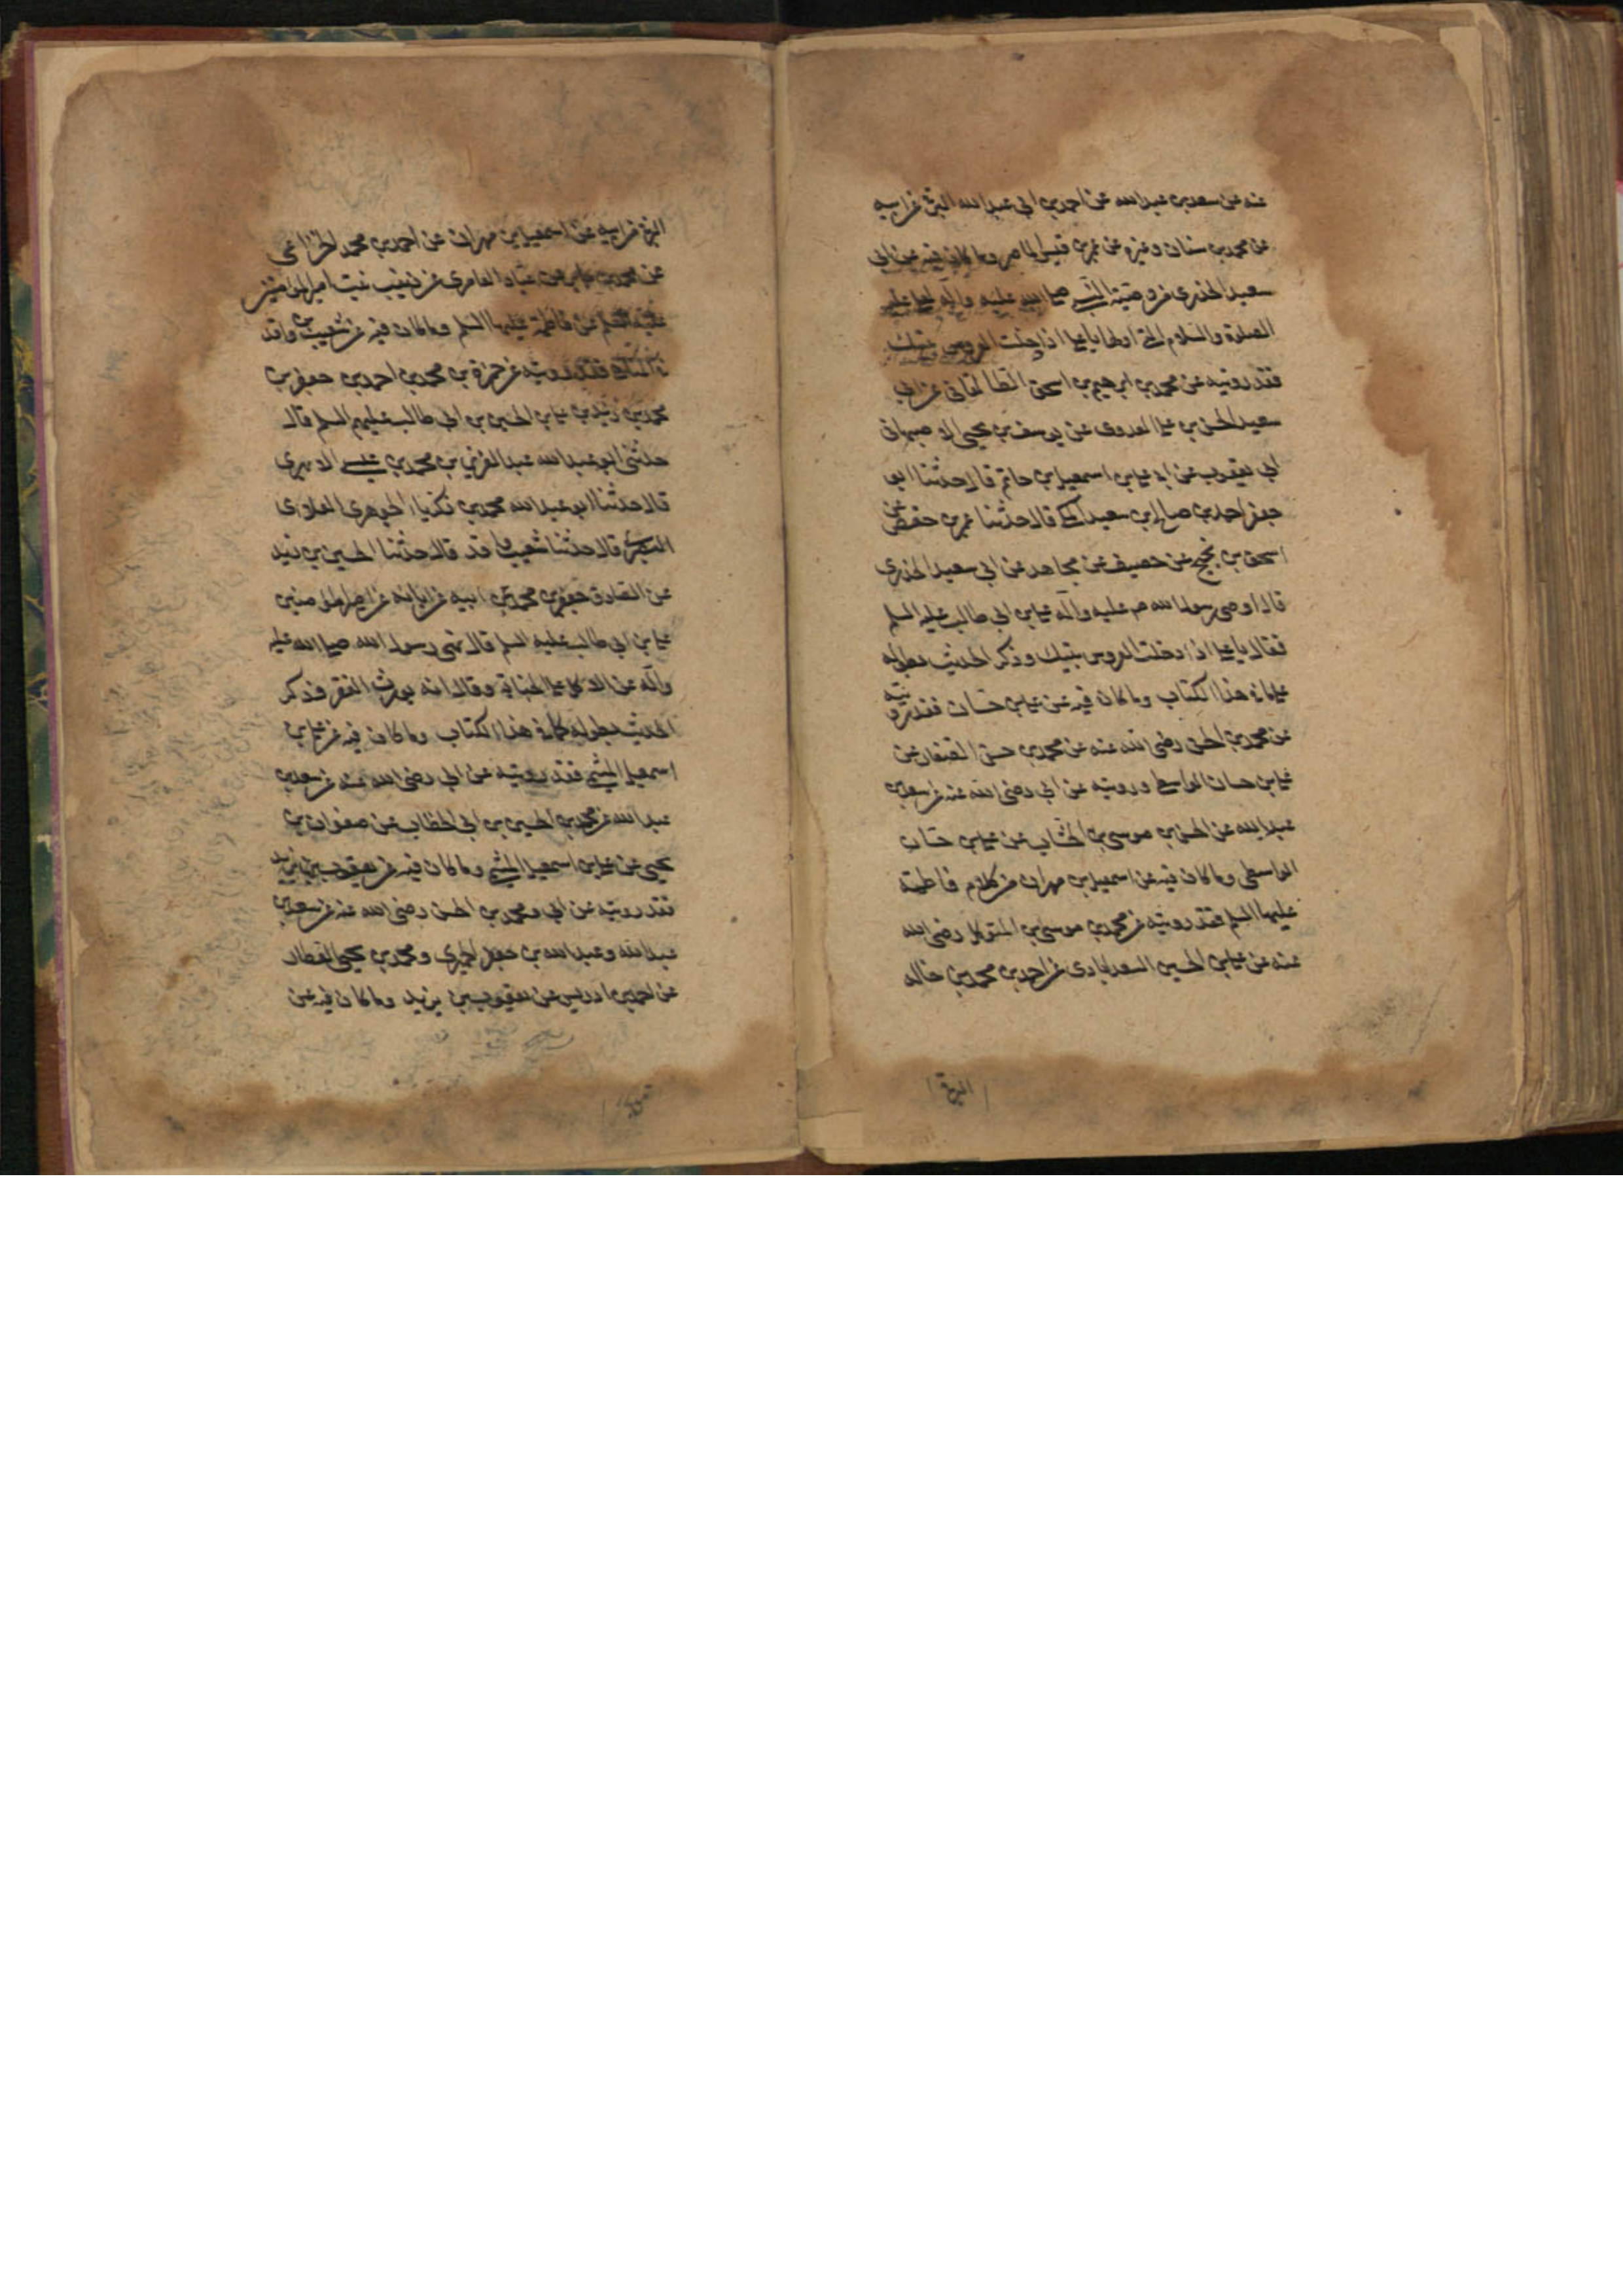 عنه عن سعد بن عبد الله عن احمد بن ابي عبد الله البرقي عن ابيه
عن محمد بن سنان وغيره عن عمر بن قيس الماصر وما كان فيه عن ابي
سعيد الخدري من وصية النبي صلى الله عليه وآله لعلي عليه
الصلوة والسلام التي اولها يا علي اذا دخلت العروس بيتك
فقد رويته عن محمد بن ابرهيم بن اسحق الطالقاني عن ابي
سعيد الحسن بن علي العدوي عن يوسف بن يحيى الاصبهاني
ابي يعقوب عن ابي علي بن اسمعيل بن حاتم قال حدثنا ابو
جعفر احمد بن صالح بن سعيد المكي قال حدثنا عمر بن حفص عن
اسحق بن نجيح عن حصيف عن مجاهد عن ابي سعيد الخدري
قال اوصى رسول الله ص عليه وآله علي بن ابي طالب عليه السلم
فقال يا علي اذا دخلت العروس بيتك وذكر الحديث بطوله
على ما في هذا الكتاب وما كان فيه عن علي بن حسان فقد رويته
عن محمد بن الحسن رضي الله عنه عن محمد بن حسن الصفار عن
علي بن حسان الواسطي ورويته عن ابي رضي الله عنه عن سعد بن
عبد الله عن الحسن بن موسى بن الخشاب عن علي بن حسان
الواسطي وما كان فيه عن اسمعيل بن مهران من كلام فاطمة
عليها السلم فقد رويته عن محمد بن موسى بن المتوكل رضي الله
عنه عن علي بن الحسين السعدابادي عن احمد بن محمد بن خالد
البرقي
البرقي عن ابيه عن اسمعيل بن مهران عن احمد بن محمد الخزاعي
عن محمد بن جابر عن عباد العامري عن زينب بنت امير المؤمنين
عليه السلم عن فاطمة عليها السلم وما كان فيه عن شعيب بن واقد
في المناهي فقد رويته عن حمزة بن محمد بن احمد بن جعفر بن
محمد بن زيد بن علي بن الحسين بن ابي طالب عليهم السلم قال
حدثني ابو عبد الله عبد العزيز بن محمد بن عيسى الابهري
قال حدثنا ابو عبد الله محمد بن زكريا الجوهري الغلابي
البصري قال حدثنا شعيب بن واقد قال حدثنا الحسين بن زيد
عن الصادق جعفر بن محمد عن ابيه عن آبائه عن امير المؤمنين
علي بن ابي طالب عليه السلم قال نهى رسول الله صلى الله عليه
وآله عن الاكل على الجنابة وقال انه يورث الفقر فذكر
الحديث بطوله كما في هذا الكتاب وما كان فيه عن علي بن
اسمعيل الميثمي فقد رويته عن ابي رضي الله عنه عن سعد بن
عبد الله عن محمد بن الحسين بن ابي الخطاب عن صفوان بن
يحيى عن علي بن اسمعيل الميثمي وما كان فيه عن يعقوب بن يزيد
فقد رويته عن ابي ومحمد بن الحسن رضي الله عنه عن سعد بن
عبد الله وعبد الله بن جعفر الحميري ومحمد بن يحيى العطار
عن احمد بن ادريس عن يعقوب بن يزيد وما كان فيه عن